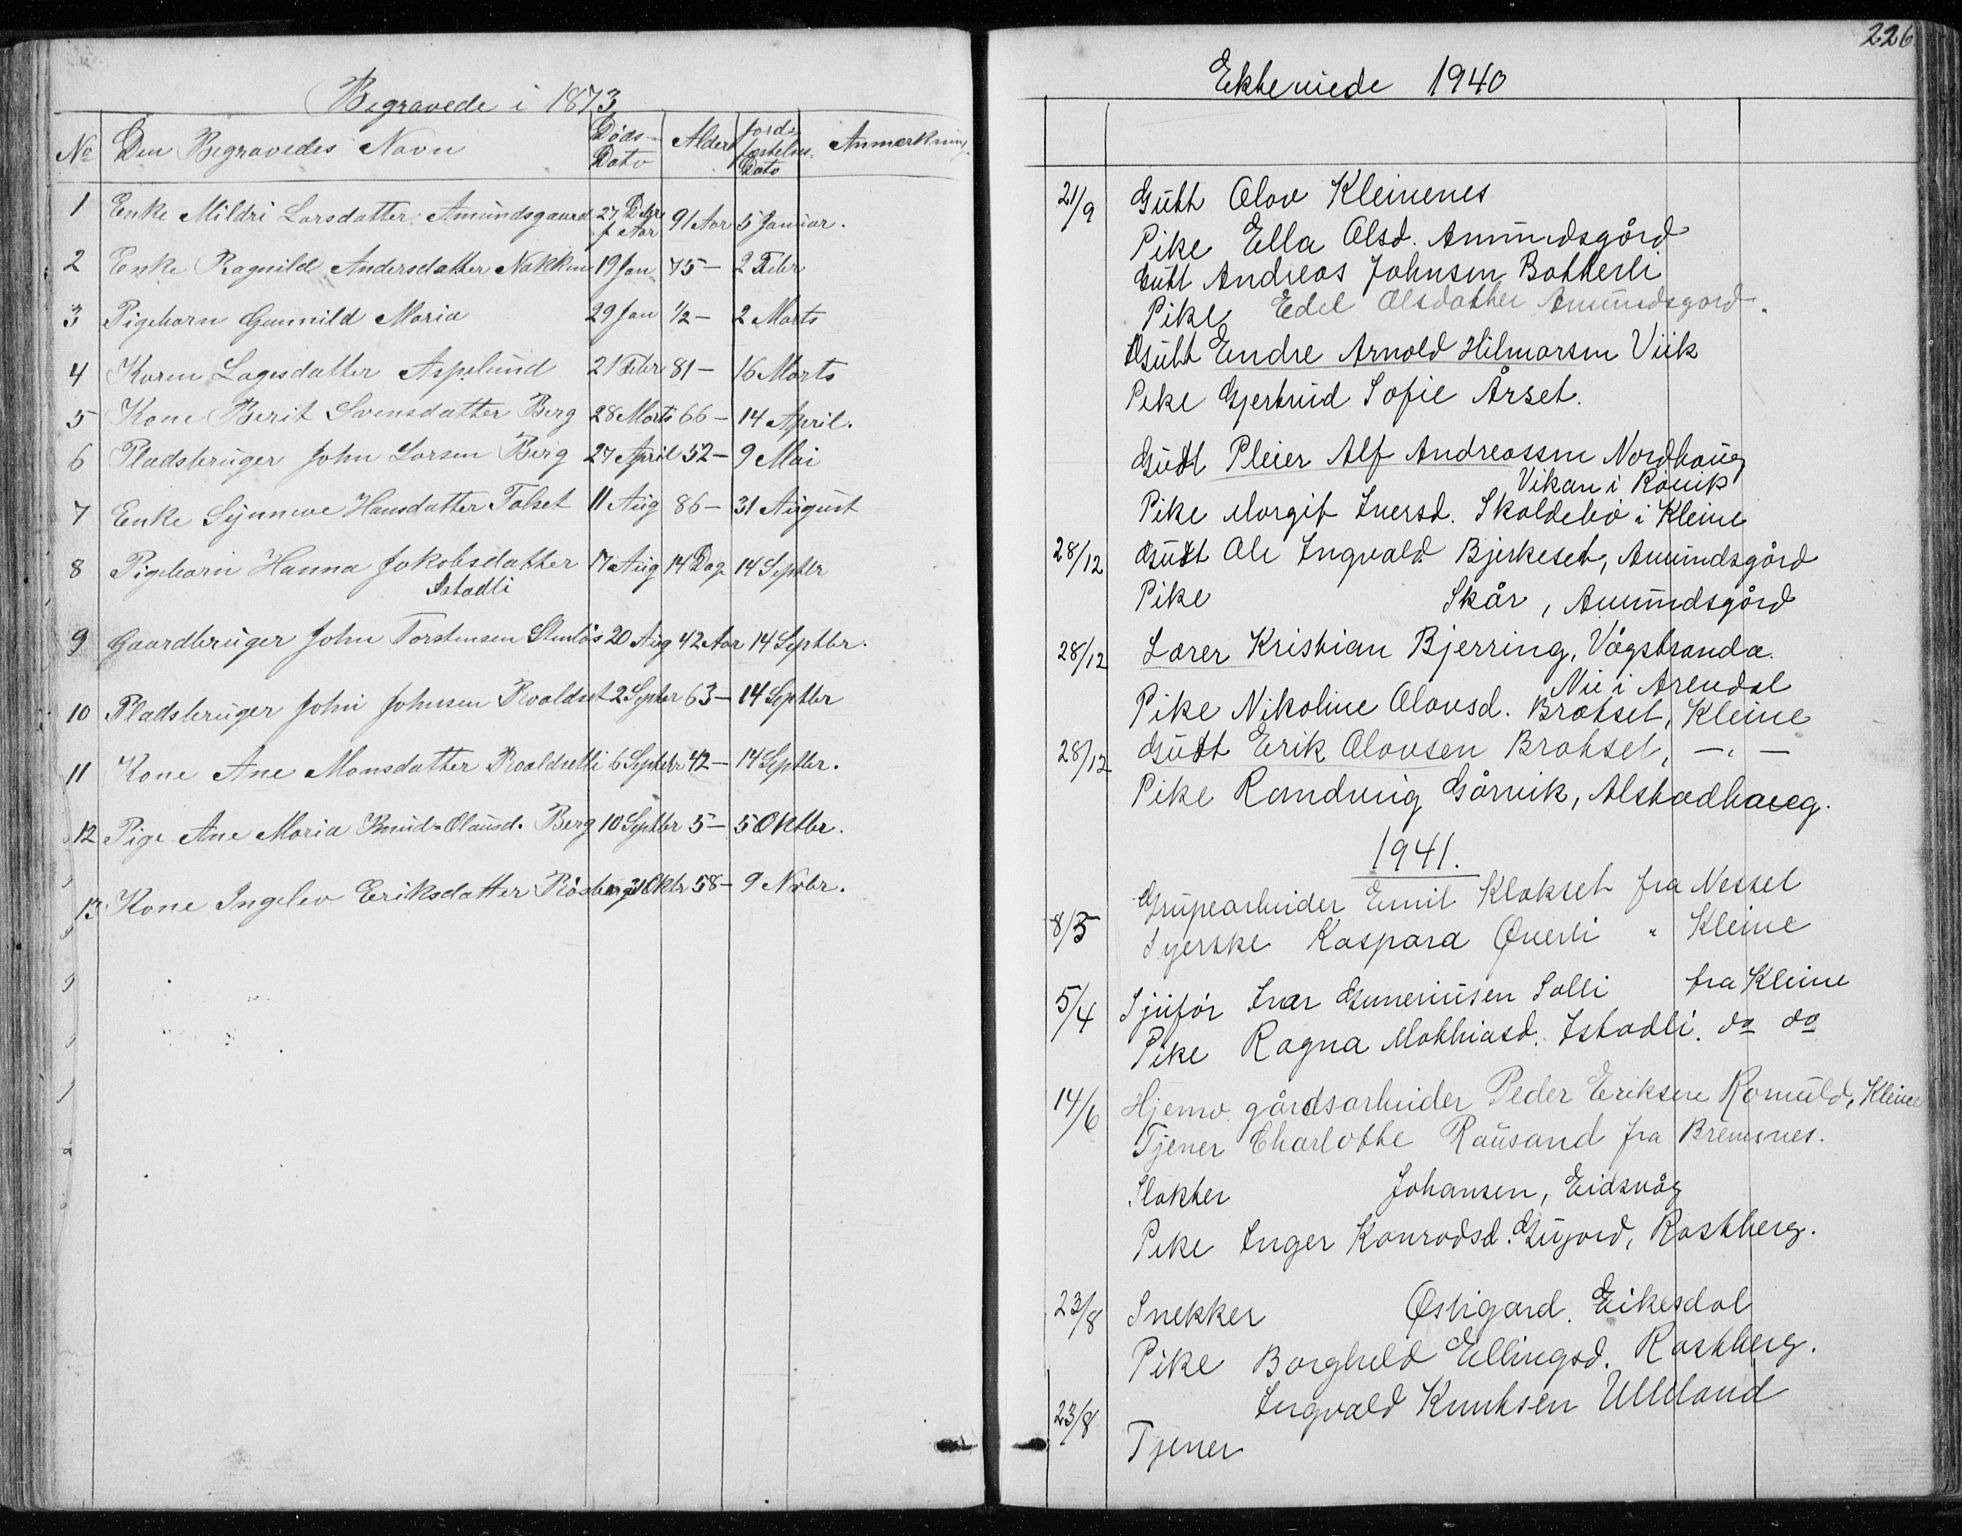 Begravede i 1873
No Den Begravedes Navn Døds-Dato Alder Jordfæstelses-Dato Anmærkning
1 Enke Mildri Larsdatter Amundsgaard 27 Debr f Aar 91 Aar 5 Januar.
2 Enke Ragnild Andersdatter Nakken 19 Jan 75 — 2 Febr
3 Pigebarn Gunnild Maria 29 Jan ½ — 2 Marts
4 Karen Lagesdatter Aspelund 21 Febr 81 — 16 Marts
5 Kone Berit Svensdatter Berg 28 Marts 66 — 14 April.
6 Pladsbruger John Larsen Berg 27 April 52 — 9 Mai
7 Enke Synneve Hansdatter Talset 11 Aug 86 — 31 August
8 Pigebarn Hanna Jakobsdatter 17 Aug 14 Dag 14 Septbr
Istadli
9 Gaardbruger John Torstensen Stenløs 20 Aug 42 Aar 14 Septbr.
10 Pladsbruger John Johnsen Roaldset 2 Septbr 63 — 14 Septbr
11 Kone Ane Monsdatter Roaldsetli 6 Septbr 42 — 14 Septbr.
12 Pige Ane Maria Knud-Olausd. Berg 10 Septbr 5 — 5 Oktbr.
13 Kone Ingelev Eriksdatter Røsberg 31 Oktbr 58 — 9 Novbr.
226
Ekteviede 1940
21/9 Gutt Olav Kleivenes
Pike Ella Olsd. Amundsgård
Gutt Andreas Johnsen Botterli
Pike Edel Olsdatter Amundsgård.
Gutt Endre Arnold Hilmarsen Viik
Pike Gjertrud Sofie Årset.
Gutt Pleier Alf Andreassen Nordhaug
Vikan i Røvik
Pike Margit Iversd. Skoldebø i Kleive
28/12 Gutt Ole Ingvald Bjerkeset, Amundsgård
Pike Skår, Amundsgård
28/12 Lærer Kristian Bjerring, Vågstranda.
Nu i Arendal
Pike Nikoline Olavsd. Bråtset, Kleive
28/12 Gutt Erik Olavsen Bråtset, —.—
Pike Randveig Gårvik, Alstadhaug.
1941.
Grupearbeider Emil Klokset fra Nesset
8/3 Syerske Kaspara Øverli " Kleive
5/4 Sjufør Ivar Guneriusen Solli fra Kleive
Pike Ragna Mathiasd. Istadli. do do
14/6 Hjemv. gårdsarbeider Peder Eriksen Romuld, Kleive
Tjener Charlotte Rausand fra Bremsnes.
Slakter Johansen, Eidsvåg
Pike Inger Konradsd. Gujord, Røstberg.
23/8 Snekker Østigard. Eikesdal
Pike Borghild Ellingsd. Røstberg.
23/8 Ingvald Knutsen Ulleland
Tjener